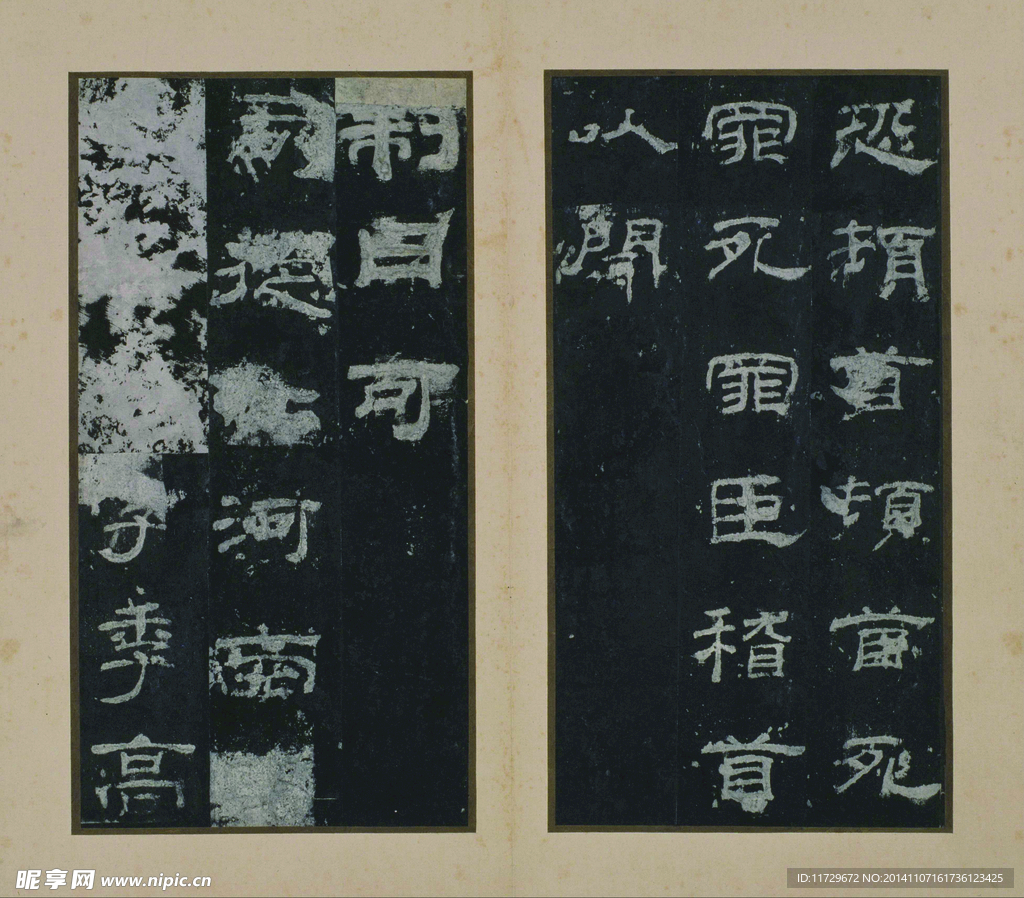 恐頓首頓首死
罪死罪臣稽首
以聞
制曰可
司徒公河南
字季高
昵享网 www.nipic.cn
ID:11729672 NO:20141107161736123425